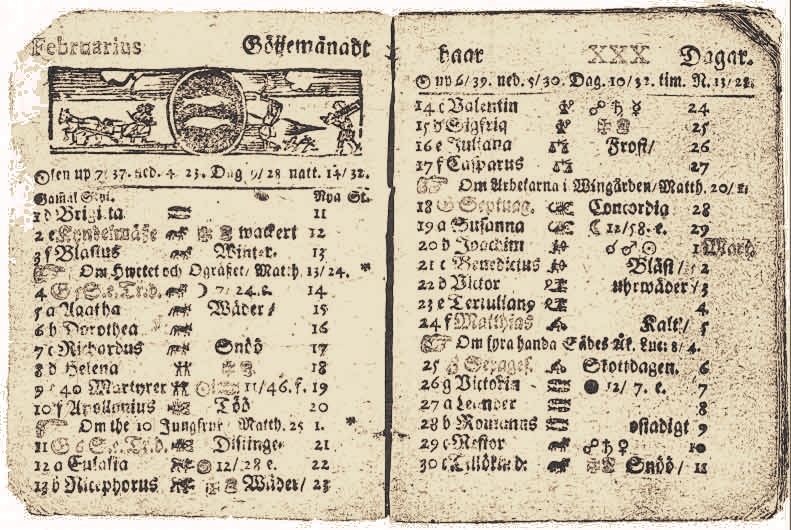 Februarius Göijemånadt
⊙len up 7/37. ned. 4. 23. Dag 9/28 natt. 14/32.
Gamal Styl. Nya St.
1 d Brigitta 11
2 e Kyndelmässe wackert 12
3 f Blasius Winter. 13
Om Hwetet och Ogräset/ Matth. 13/24.
4 G 5 S. e. Tr. d. ☽ 7/24. e. 14
5 a Agatha Wäder/ 15
6 b Dorothea 16
7 c Richardus Snöö 17
8 d Helena 18
9 e 40 Martyrer 11/46. f. 19
10 f Apollonius Töö 20
Om the 10 Jungfrur Matth. 25 1.
11 G 6 S. e. Tr. d. Distinge. 21
12 a Eulalia 12/28 e. 22
13 b Nicephorus Wäder/ 23
haar XXX Dagar.
⊙ up 6/39. ned. 5/30. Dag. 10/32. tim. N. 13/28.
14 c Valentin ☍ ♄ ☿ 24
15 d Sigfrid 25
16 e Juliana Frost/ 26
17 f Casparus 27
Om Arbetarna i Wingården/ Matth. 20/1.
18 G Septuag. Concordia 28
19 a Susanna ☾ 12/58. e. 29
20 b Joachim ☌ ♂ ⊙ 1 Mart.
21 c Benedictus Bläst/ 2
22 d Victor uhrwäder/ 3
23 e Tertulianꝰ 4
24 f Matthias Kalt/ 5
Om fyra handa Sädes Åk. Luc. 8/4.
25 G Sexages. Skottdagen. 6
26 g Victorin ● 12/7. e. 7
27 a Leander 8
28 b Romanus ostadigt 9
29 c Nestor ☍ ♄ ♀ 10
30 c Tillökind: Snöö/ 11